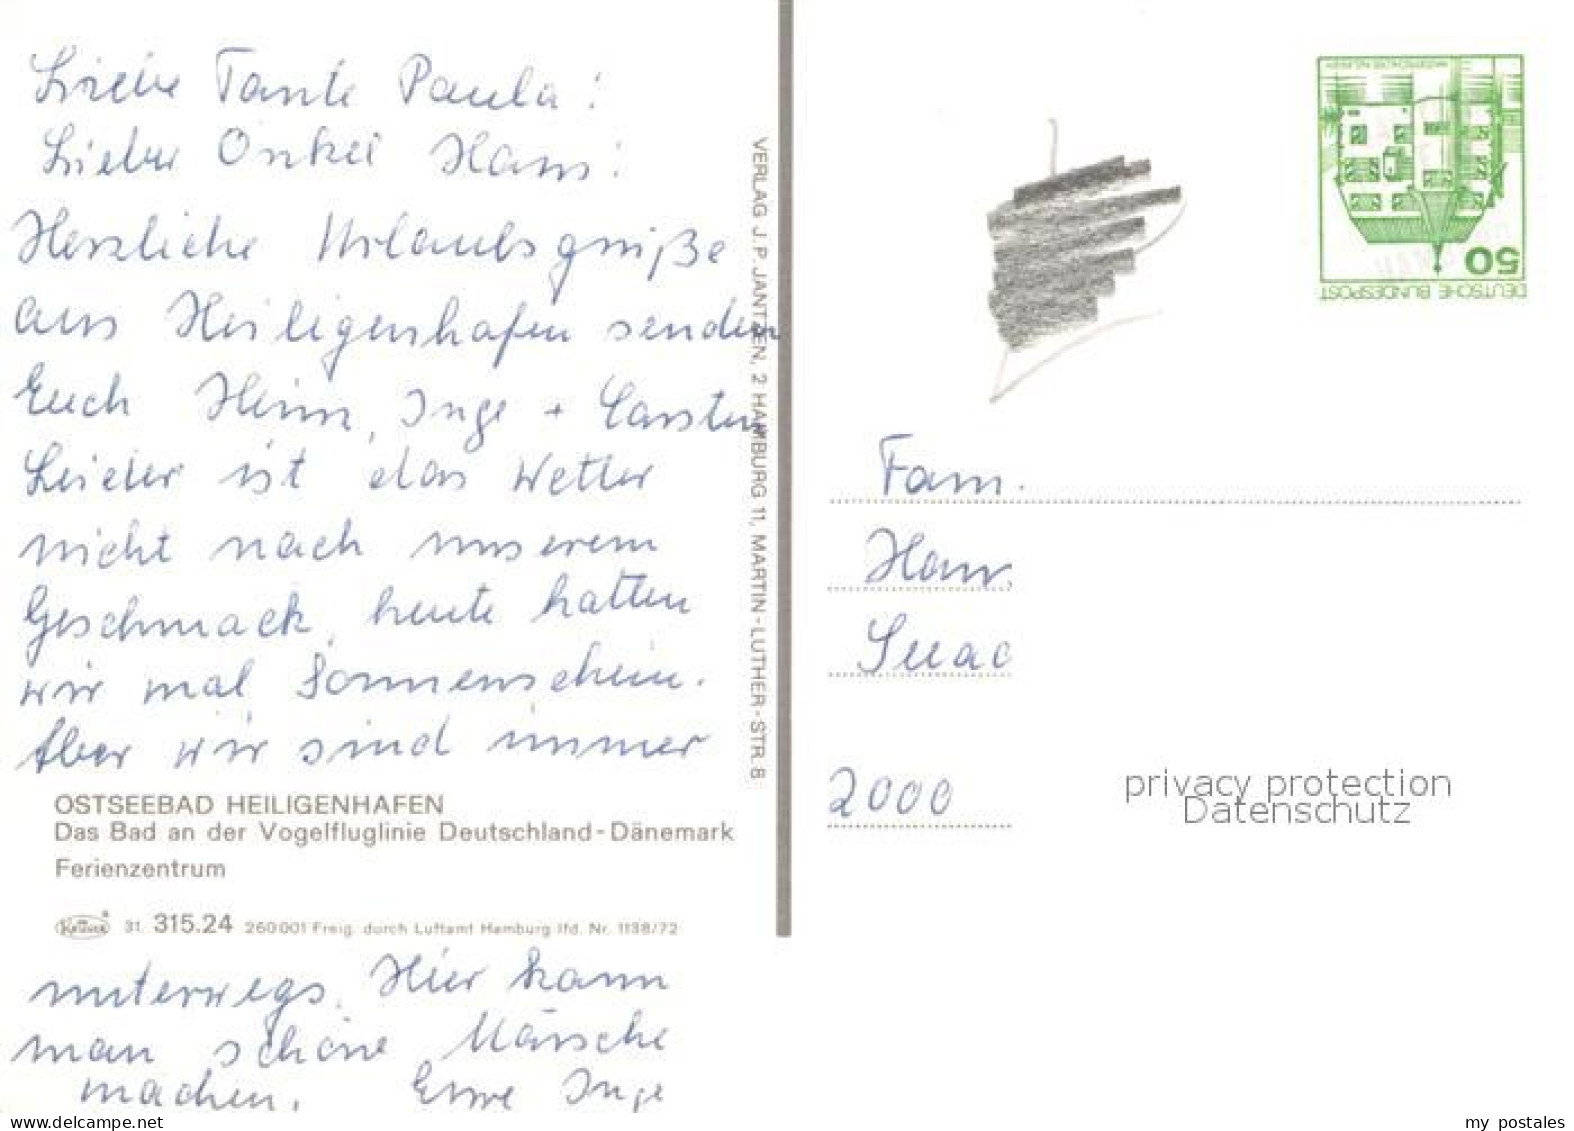 Liebe Tante Paula!
Lieber Onkel Hans!
Herzliche Urlaubsgrüße
aus Heiligenhafen senden
Euch Heinr, Inge + Carsten
Leider ist das Wetter
nicht nach unserem
Geschmack, heute hatten
wir mal Sonnenschein.
Aber wir sind immer
OSTSEEBAD HEILIGENHAFEN
Das Bad an der Vogelfluglinie Deutschland-Dänemark
Ferienzentrum
Krüger 31. 315.24 260001 Freig. durch Luftamt Hamburg lfd. Nr. 1138/72
unterwegs. Hier kann
man schöne Märsche
machen. Eure Inge
VERLAG J. P. JANTZEN, 2 HAMBURG 11, MARTIN-LUTHER-STR. 8
DEUTSCHE BUNDESPOST
50
Fam.
Hans
2000
privacy protection
Datenschutz
my postales